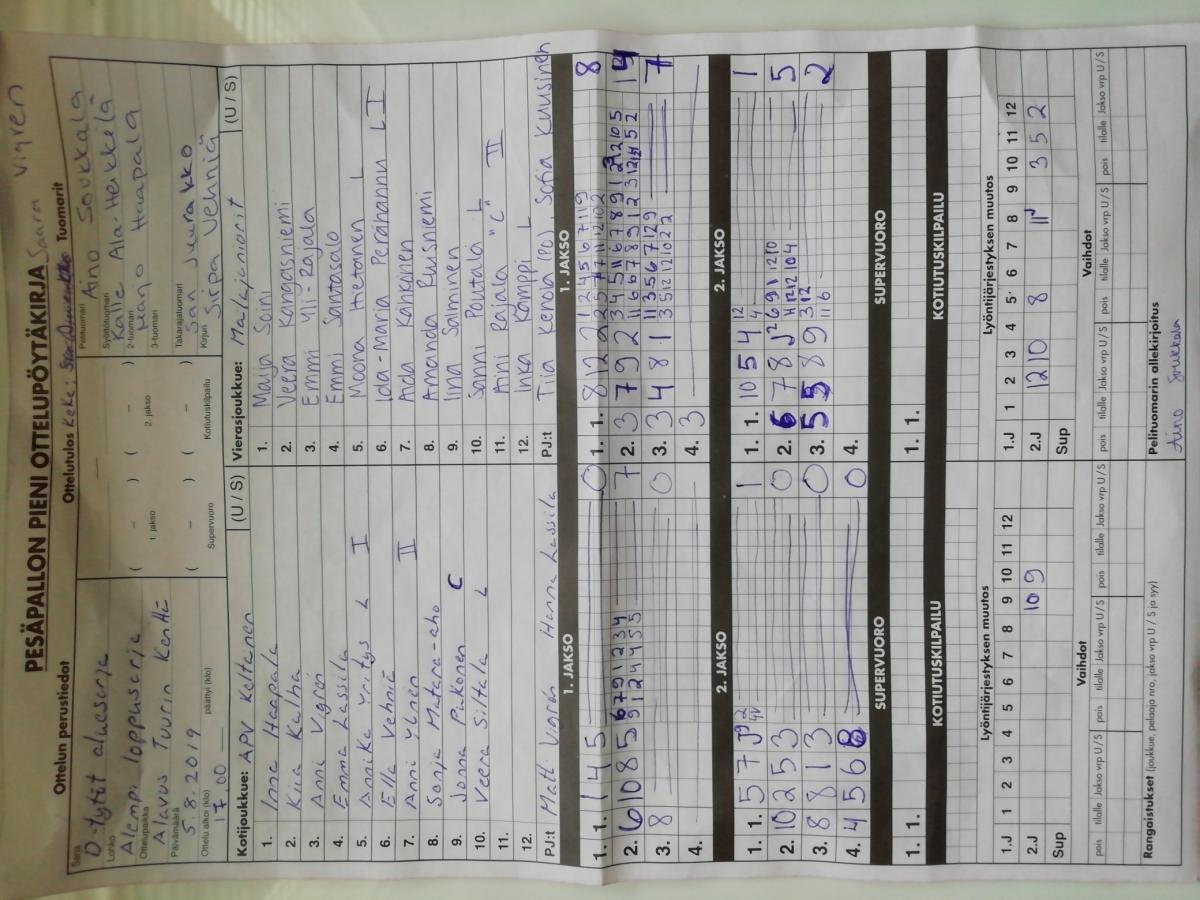 PESÄPALLON PIENI OTTELUPÖYTÄKIRJA
Ottelun perustiedot
Ottelutulos
Keke: Saara Vigren
Tuomarit
Sarja
D-tytöt aluesarja
Lohko
Alempi loppusarja
Ottelupaikka
Alavus Tuurin Kenttä
Päivämäärä
5.8.2019
Ottelu alkoi (klo)
17.00
päättyi (klo)
( – ) ( – )
1. jakso
2. jakso
( – ) ( – )
Supervuoro
Kotiutuskilpailu
Pelituomari
Aino Soukkala
Syöttötuomari
Kalle Ala-Heikkilä
2-tuomari
Marjo Haapala
3-tuomari
Takarajatuomari
Sari Juurakko
Kirjuri
Sirpa Vehniä
Kotijoukkue: APV Keltanen
(U / S)
1. Inna Haapala
2. Kiia Kalha
3. Anni Vigren
4. Emma Lassila
5. Annika Yritys L I
6. Ella Vehniä
7. Anni Ylinen II
8. Sonja Matara-aho
9. Jonna Pukonen C
10. Veera Siltala L
11.
12.
PJ:t Matl. Vigren Hanna Lassila
Vierasjoukkue: Mailajuniorit
(U / S)
1. Maija Soini
2. Veera Kangasniemi
3. Emmi Yli-Rajala
4. Emmi Santasalo
5. Moona Hietanen L
6. Ida-Maria Perähannu L I
7. Ada Kahkonen
8. Amanda Ruisniemi
9. Iina Salminen
10. Sanni Poutala L
11. Aini Rajala "C" II
12. Inka Kamppi L
PJ:t Tiia Kenola (PO), Sofia Kuusinen
1. JAKSO
1. 1. 1 4 5 0
2. 6 10 8 5 6 7 9 1 2 3 4 7
9 1 2 4 4 5 5
3. 8 0
4.
2. JAKSO
1. 1. 5 7 J 9 2 1
2. 10 2 5 3 0
3. 8 8 1 3 0
4. 4 5 6 8 0
SUPERVUORO
1. 1.
KOTIUTUSKILPAILU
1. JAKSO
1. 1. 8 12 2 2 1 2 4 5 6 7 11 9 8
2. 3 7 9 2 14
3. 3 4 8 1 3 5 6 7 12 9 7
3 5 12 11 10 2 2
4. 3
2. JAKSO
1. 1. 10 5 4 12 1
2. 6 7 8 J 2 6 9 11 12 10 5
3. 5 5 8 9 3 12 2
11 6
4.
SUPERVUORO
1. 1.
KOTIUTUSKILPAILU
Lyöntijärjestyksen muutos
1.J 1 2 3 4 5 6 7 8 9 10 11 12
2.J 10 9
Sup
Vaihdot
pois tilalle Jakso vrp U / S pois tilalle Jakso vrp U / S pois tilalle Jakso vrp U / S
Lyöntijärjestyksen muutos
1.J 1 2 3 4 5 6 7 8 9 10 11 12
2.J 12 10 8 11 3 5 2
Sup
Vaihdot
pois tilalle Jakso vrp U / S pois tilalle Jakso vrp U / S pois tilalle Jakso vrp U / S
Rangaistukset (joukkue, pelaaja nro, jakso vrp U / S ja syy)
Pelituomarin allekirjoitus
Aino Soukkala